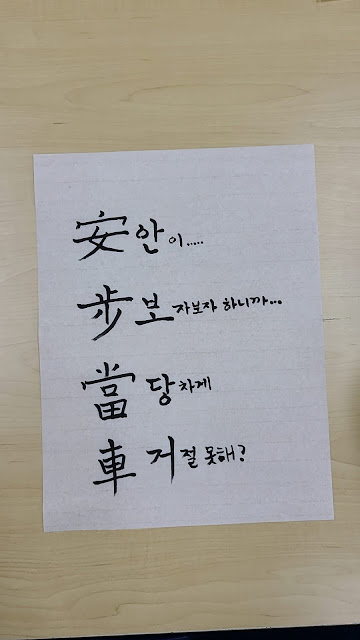 安 안이.....
步 보자보자 하니까...
當 당차게
車 거절 못해?